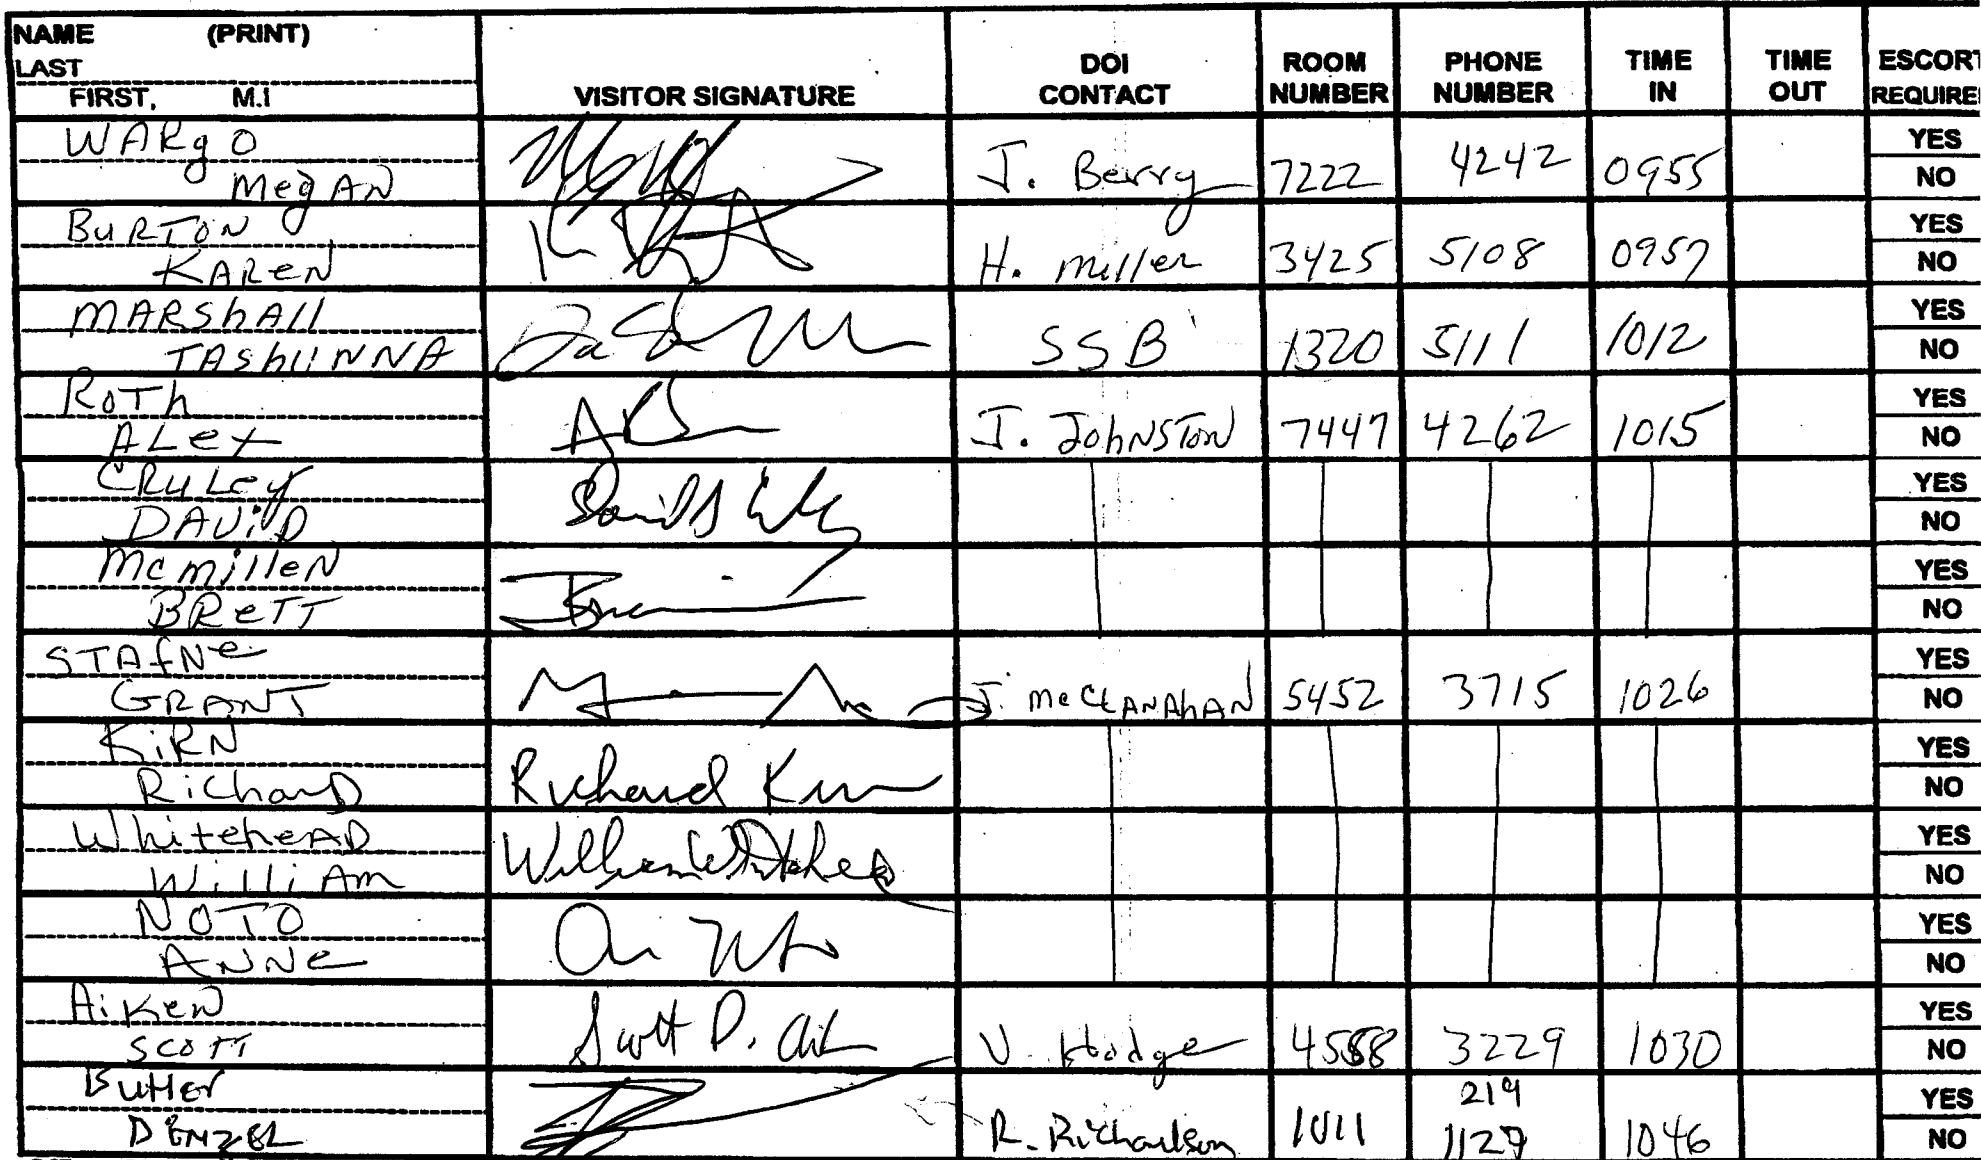 NAME (PRINT)
LAST
FIRST, M.I
VISITOR SIGNATURE
DOI
CONTACT
ROOM
NUMBER
PHONE
NUMBER
TIME
IN
TIME
OUT
ESCORT
REQUIRE
WARgO
MegAN
J. Berry 7222 4242 0955
YES
NO
BuRTON
KAReN
H. miller 3425 5108 0957
YES
NO
MARShAll
TAShUNNA
SSB 1320 5111 1012
YES
NO
RoTh
ALex
J. JohNSToN 7447 4262 1015
YES
NO
CRuLey
DAViD
David
YES
NO
McmilleN
BReTT
YES
NO
STAfNe
GRANT
J. McCLANAhAN 5452 3715 1026
YES
NO
KiRN
RicharD
Richard Kirn
YES
NO
WhiteheAD
WilliAm
William Whitehead
YES
NO
NOTO
ANNe
YES
NO
AiKeN
SCOTT
Scott D.
V. Hodge 3229 1030
YES
NO
Butler
DENZEL
R. Richardson 1011 219
1129 1046
YES
NO